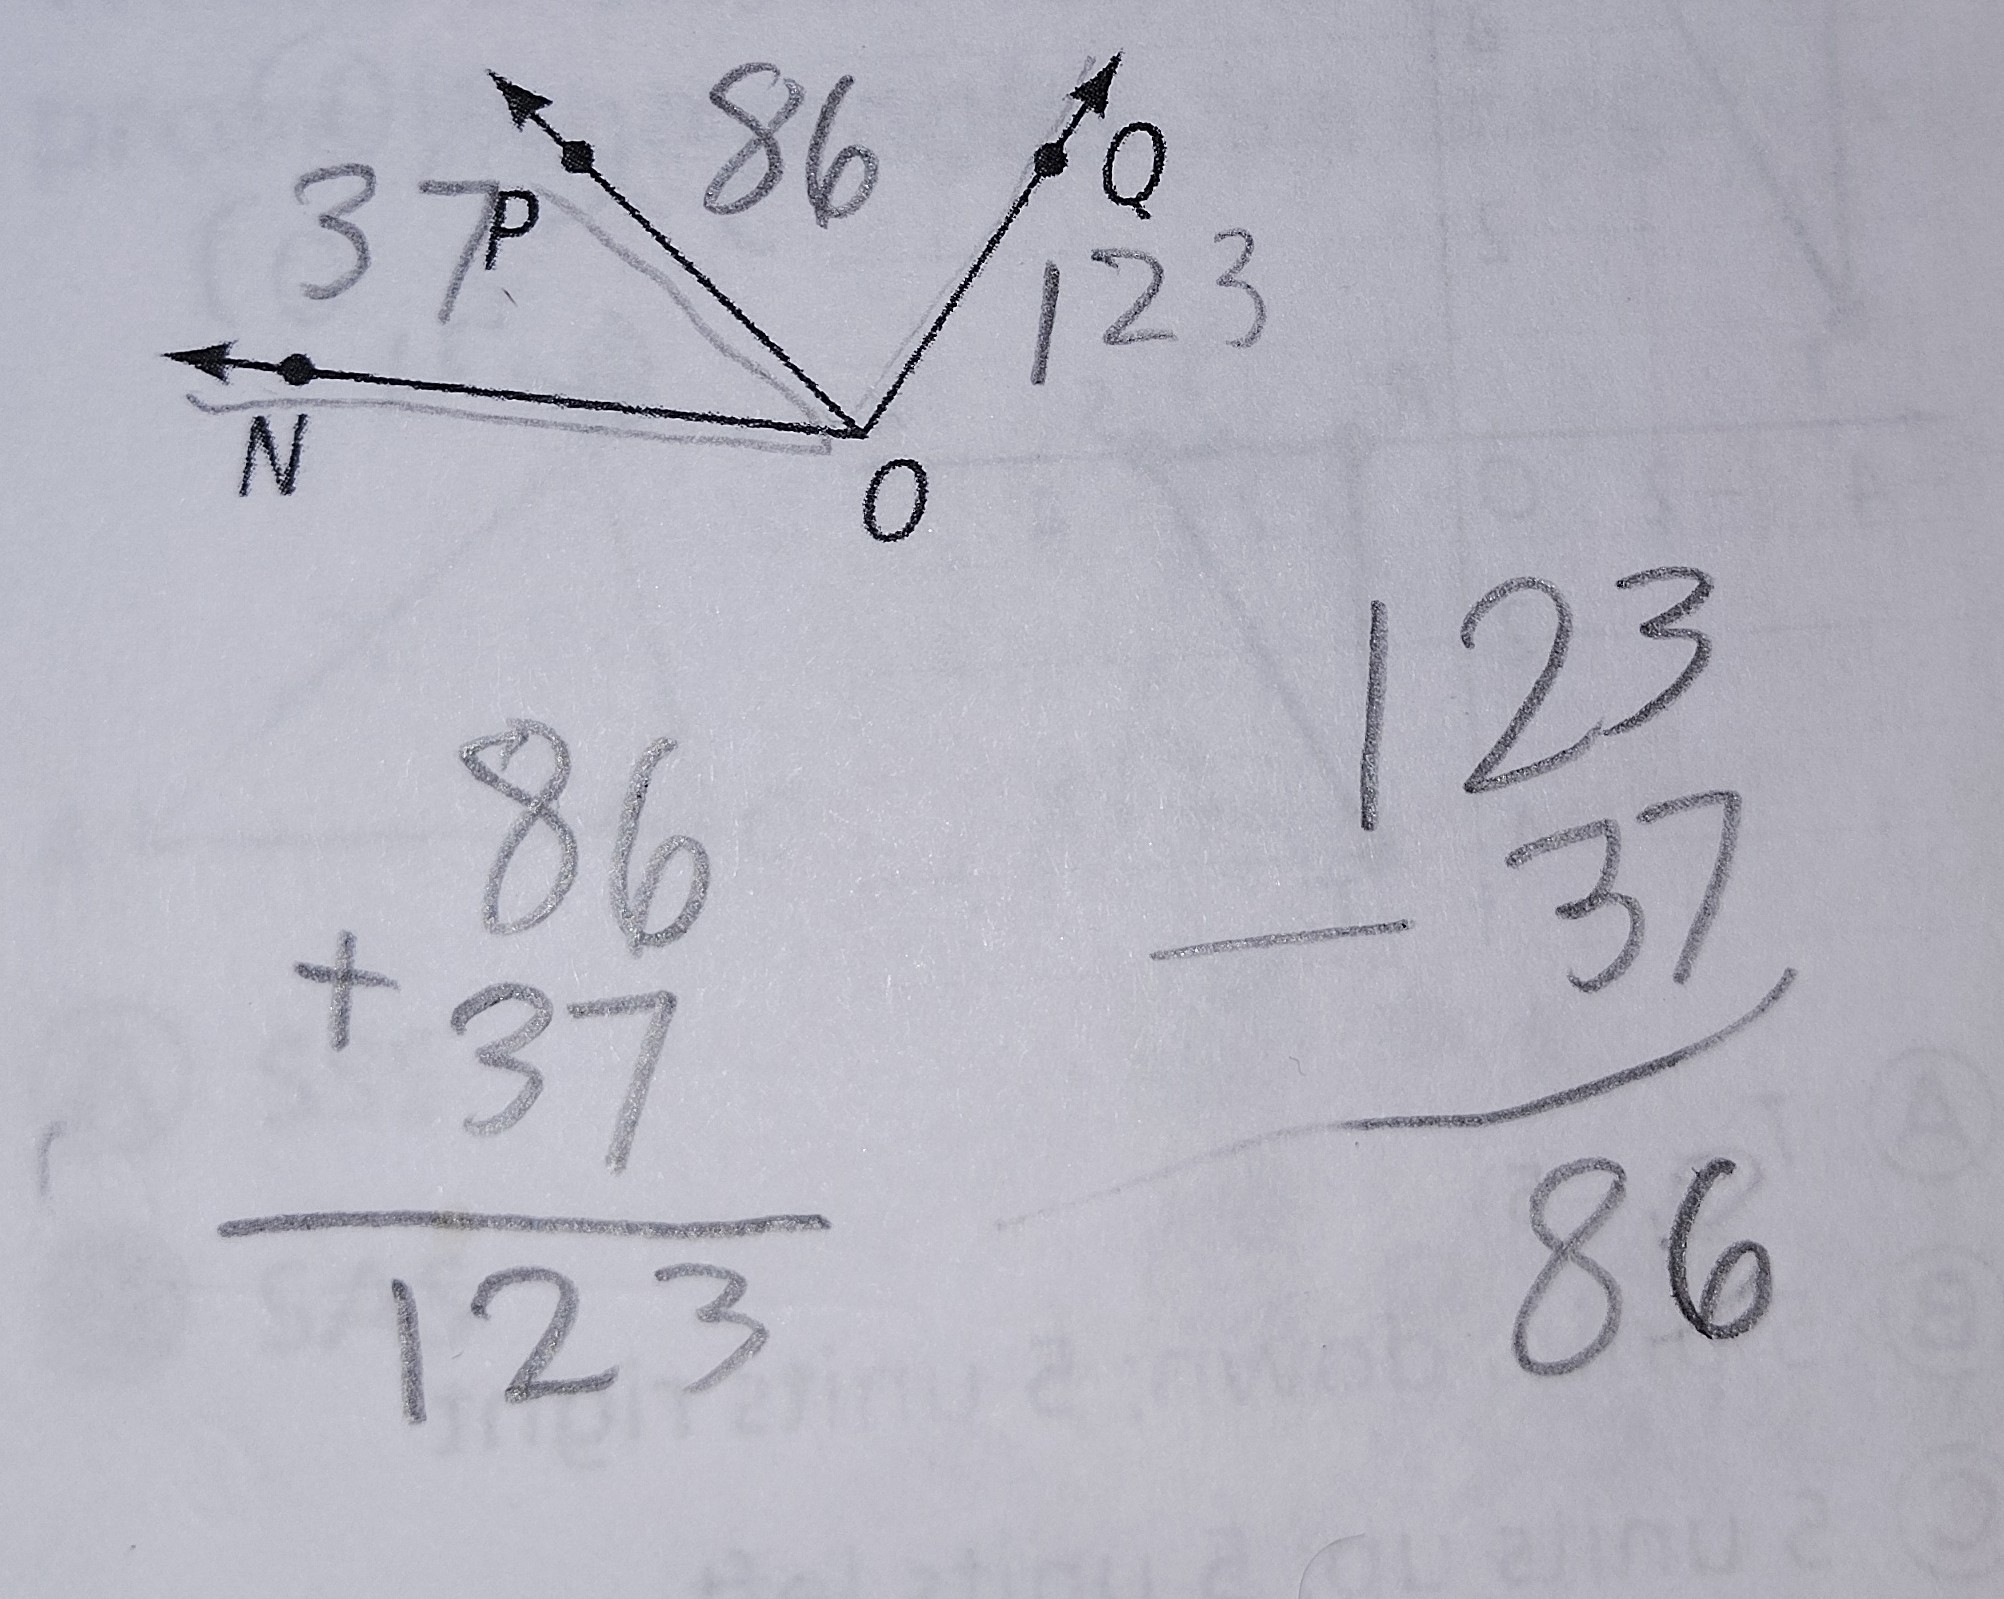 86
Q
37 P
123
N
O
123
- 37
86
86
+ 37
123